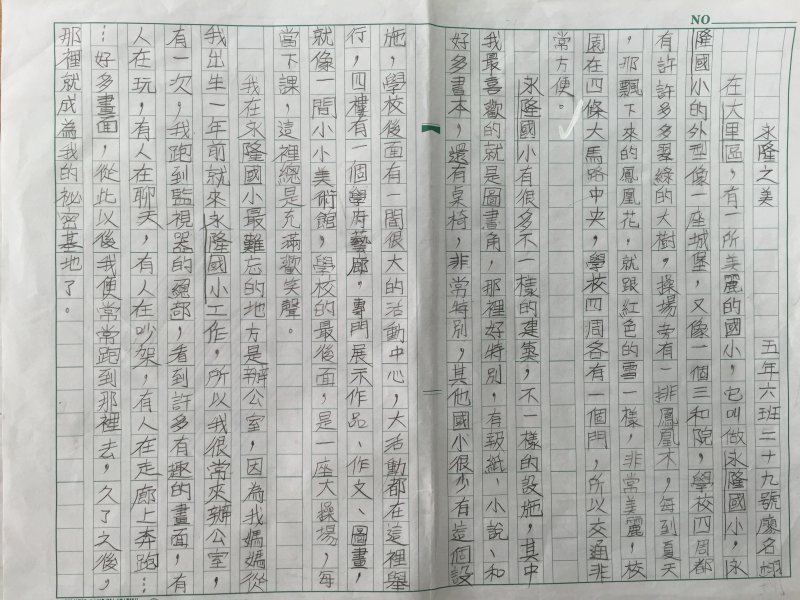 NO
永隆之美
五年六班二十九號廖名翊
在大里區，有一所美麗的國小，它叫做永隆國小，永
隆國小的外型像一座城堡，又像一個三和院，學校四周都
有許許多多翠綠的大樹，操場旁有一排鳳凰木，每到夏天
，那飄下來的鳳凰花，就跟紅色的雪一樣，非常美麗，校
園在四條大馬路中央，學校四周各有一個門，所以交通非
常方便。
永隆國小有很多不一樣的建築，不一樣的設施，其中
我最喜歡的就是圖書角，那裡好特別，有報紙、小說、和
好多書本，還有桌椅，非常特別，其他國小很少有這個設
施，學校後面有一間很大的活動中心，大活動都在這裡舉
行，四樓有一個學府藝廊，專門展示作品、作文、圖畫，
就像一間小小美術館，學校的最後面，是一座大操場，每
當下課，這裡總是充滿歡笑聲。
我在永隆國小最難忘的地方是辦公室，因為我媽媽從
我出生一年前就來永隆國小工作，所以我很常來辦公室，
有一次，我跑到監視器的總部，看到許多有趣的畫面，有
人在玩，有人在聊天，有人在吵架，有人在走廊上奔跑…
…好多畫面，從此以後我便常常跑到那裡去，久了之後，
那裡就成為我的祕密基地了。